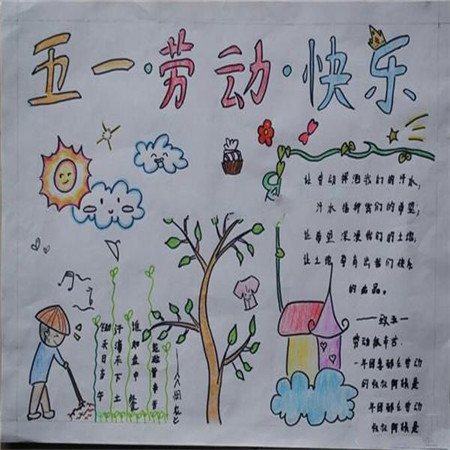 五一·劳动·快乐
让劳动挥洒我们的汗水,
汗水播种我们的希望;
让希望我们的土地,
让土地孕育出我们快乐
的作品。
——致五一
劳动最辛苦.
一年四季都在劳动
的
年四都在劳动
日当午
汗滴禾下土
谁知盘中餐
粒粒皆辛苦